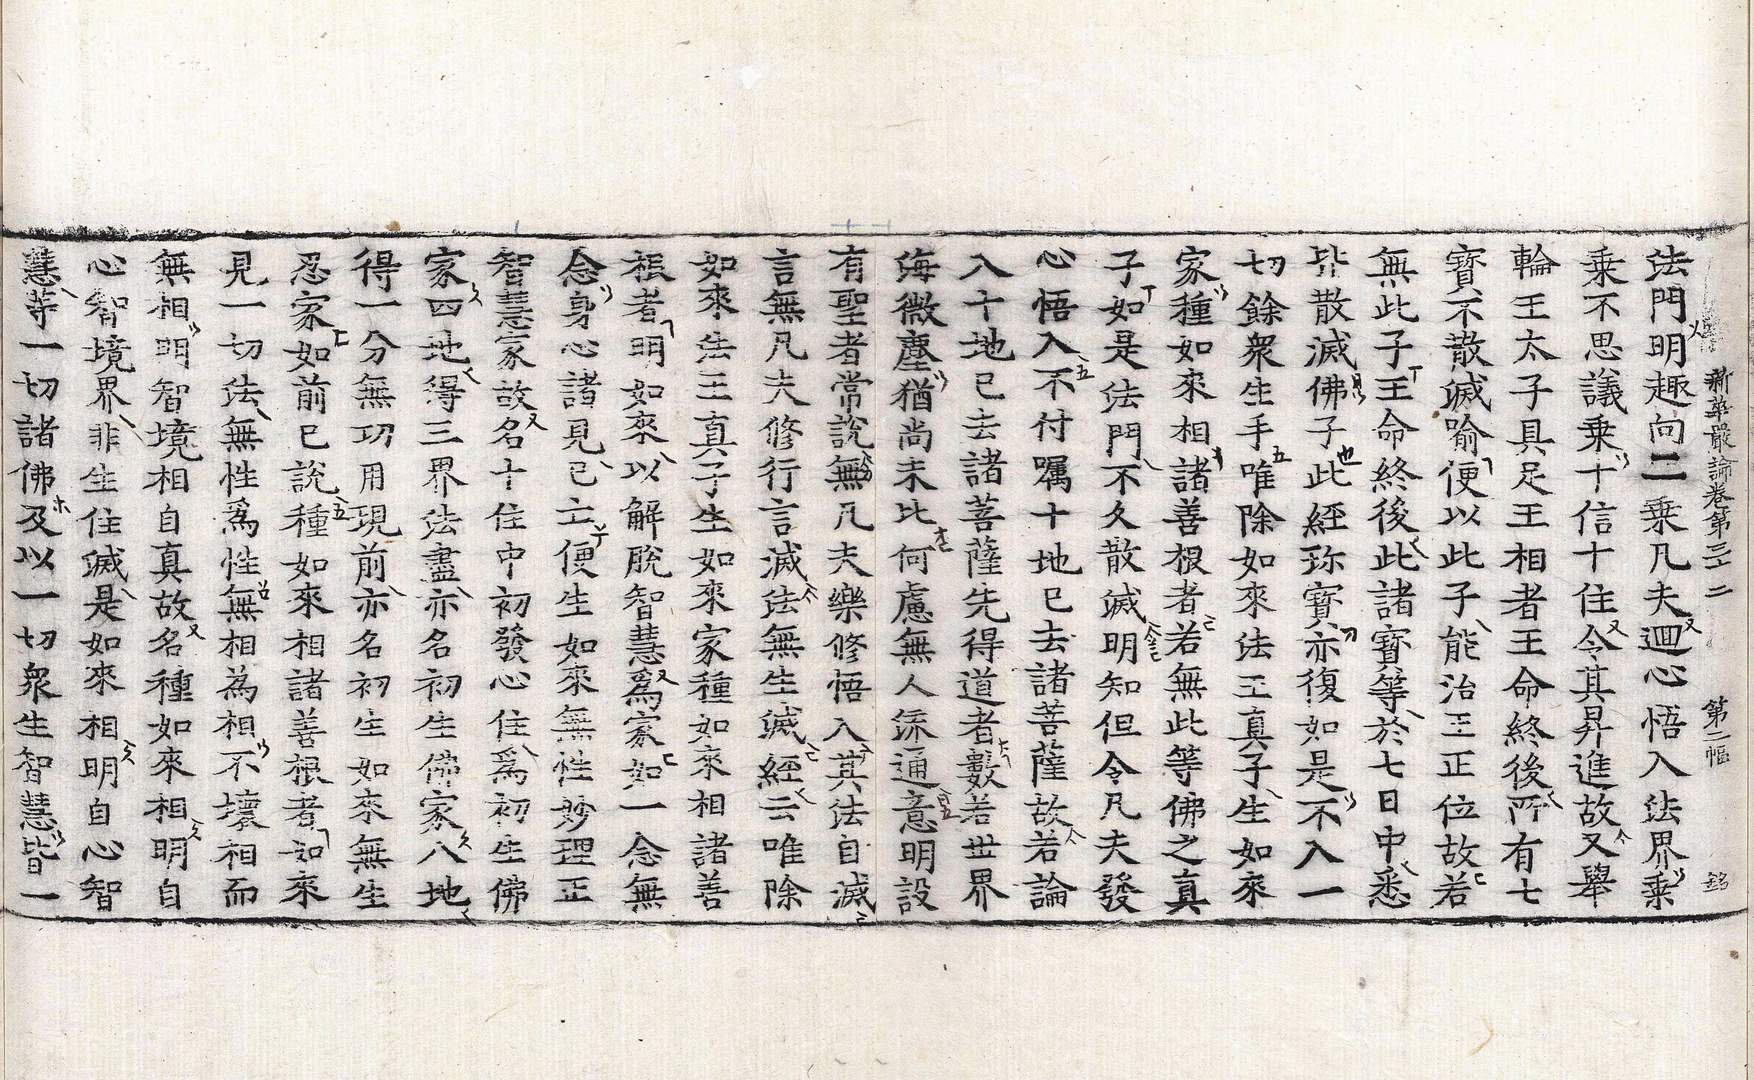 新華嚴論卷第三 二 第二幅
法門明趣向二乗凡夫迴心悟入法界乗
乗不思議乗十信十住令其昇進故又舉
輪王太子具足王相者王命終後所有七
寳不散滅喻便以此子能治王正位故若
無此子王命終後此諸寳等於七日中悉
皆散滅佛子此經珎寳亦復如是不入一
切餘衆生手唯除如來法王真子生如來
家種如來相諸善根者若無此等佛之真
子如是法門不久散滅明知但令凡夫發
心悟入不付囑十地已去諸菩薩故若論
入十地已去諸菩薩先得道者數若世界
海微塵猶尚未比何慮無人流通意明設
有聖者常說無凡夫樂修悟入其法自滅
言無凡夫修行言滅法無生滅經云唯除
如來法王真子生如來家種如來相諸善
根者明如來以解脫智慧爲家如一念無
念身心諸見已亡便生如來無性妙理正
智慧家故名十住中初發心住爲初生佛
家四地得三界法盡亦名初生佛家八地
得一分無功用現前亦名初生如來無生
忍家如前已說種如來相諸善根者如來
見一切法無性爲性無相為相不壞相而
無相明智境相自真故名種如來相明自
心智境界非生住滅是如來相明自心智
慧等一切諸佛及以一切衆生智慧皆一